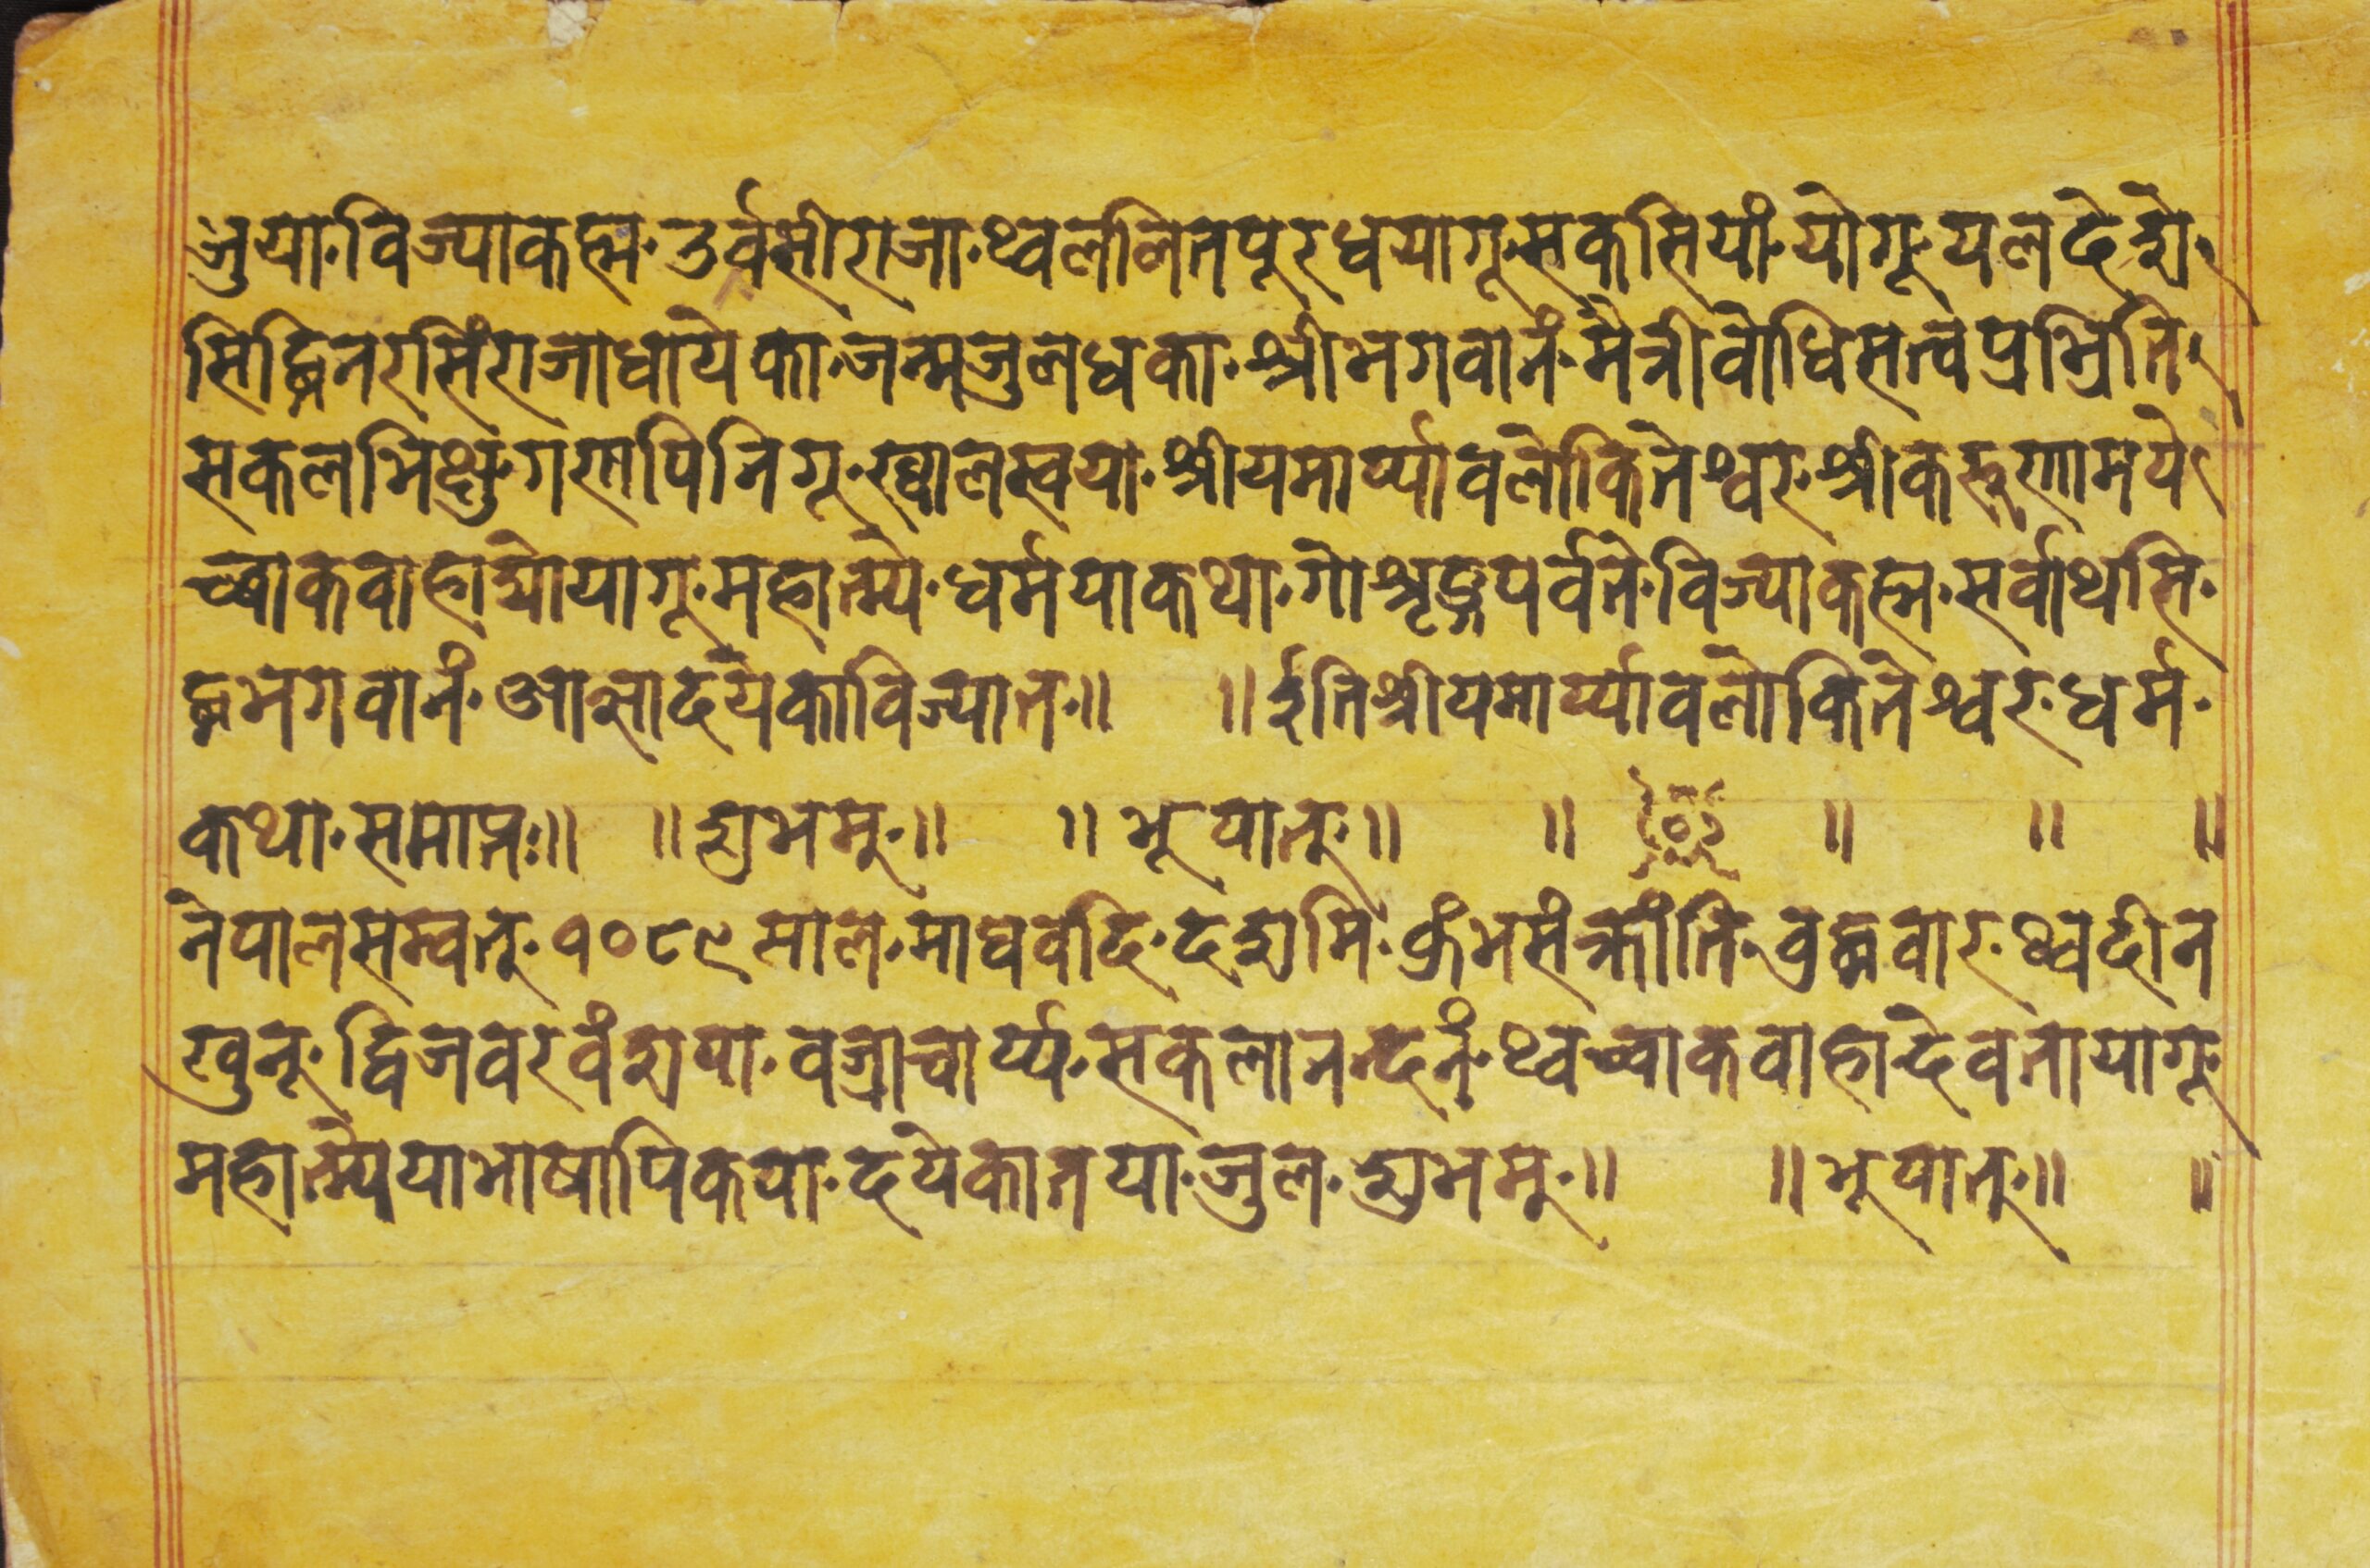 जुया· विज्याकह्म· उर्वसीराजा· थ्वललितपूरधयागू· सकसियां· योगू· यलदेशे·
सिद्धिनरसिंराजाधायेका· जन्मजुलधका· श्रीभगवानं· मैत्रीवोधिसत्वप्रभ्रिति·
सकलभिक्षुगणपिनिगू· ख्वालस्वया· श्रीयमार्य्यावलोकितेश्वर· श्रीकरुणामये
च्वाकवाहाद्योयागू· महात्म्ये· धर्मयाकथा· गोश्रृङ्गपर्वते· विज्याकह्म· सर्वाथसि·
द्धभगवानं· आज्ञादयेकाविज्यात·॥ ॥ईतिश्रीयमार्य्यावलोकितेश्वर· धर्म·
कथा· समाप्तः॥ ॥शुभमु·॥ ॥भूयातु·॥ ॥ ॥ ॥ ॥
नेपालसम्वतु· १०८९ साल· माघवदि· दशमि· कुंभसंक्रांति· वुद्धवार· थ्वदीन
खुनू· द्विजवरवंशया· वज्राचार्य्य· सकलानन्दनं· थ्वच्वाकवाहादेवतायागू
महात्म्येयाभाषापिकया· दयेकातया· जुल· शुभमु·॥ ॥भूयातु·॥ ॥